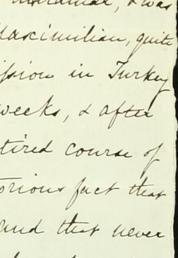 & was
Maximilian, quite
ission in Turkey
weeks, & after
tired course of
orious fact that
and that never